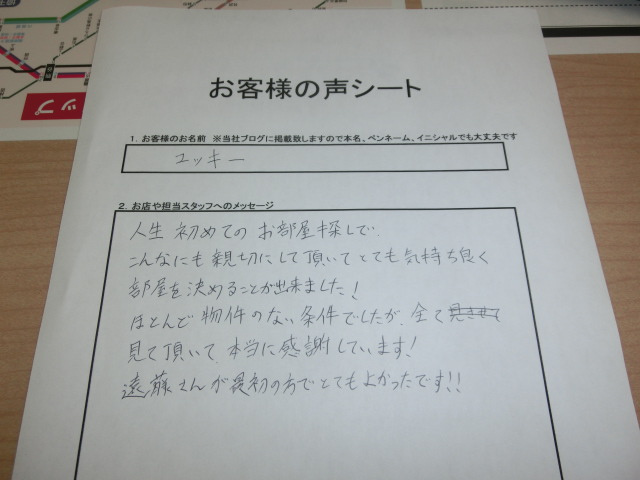 ップ
お客様の声シート
1. お客様のお名前 ※当社ブログに掲載致しますので本名、ペンネーム、イニシャルでも大丈夫です
ユッキー
2. お店や担当スタッフへのメッセージ
人生初めてのお部屋探しで、
こんなにも親切にして頂いてとても気持ち良く
部屋を決めることが出来ました!
ほとんど物件のない条件でしたが、全て見させて
見て頂いて、本当に感謝しています!
遠藤さんが最初の方でとてもよかったです!!